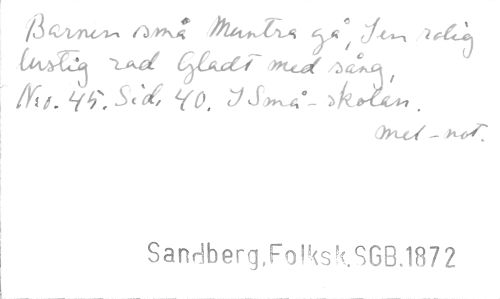 Barnen små Muntra gå, I en rolig
lustig rad Gladt med sång,
N:o. 45. Sid. 40. I Små-skolan.
mel-not.
Sandberg, Folksk. SGB. 1872